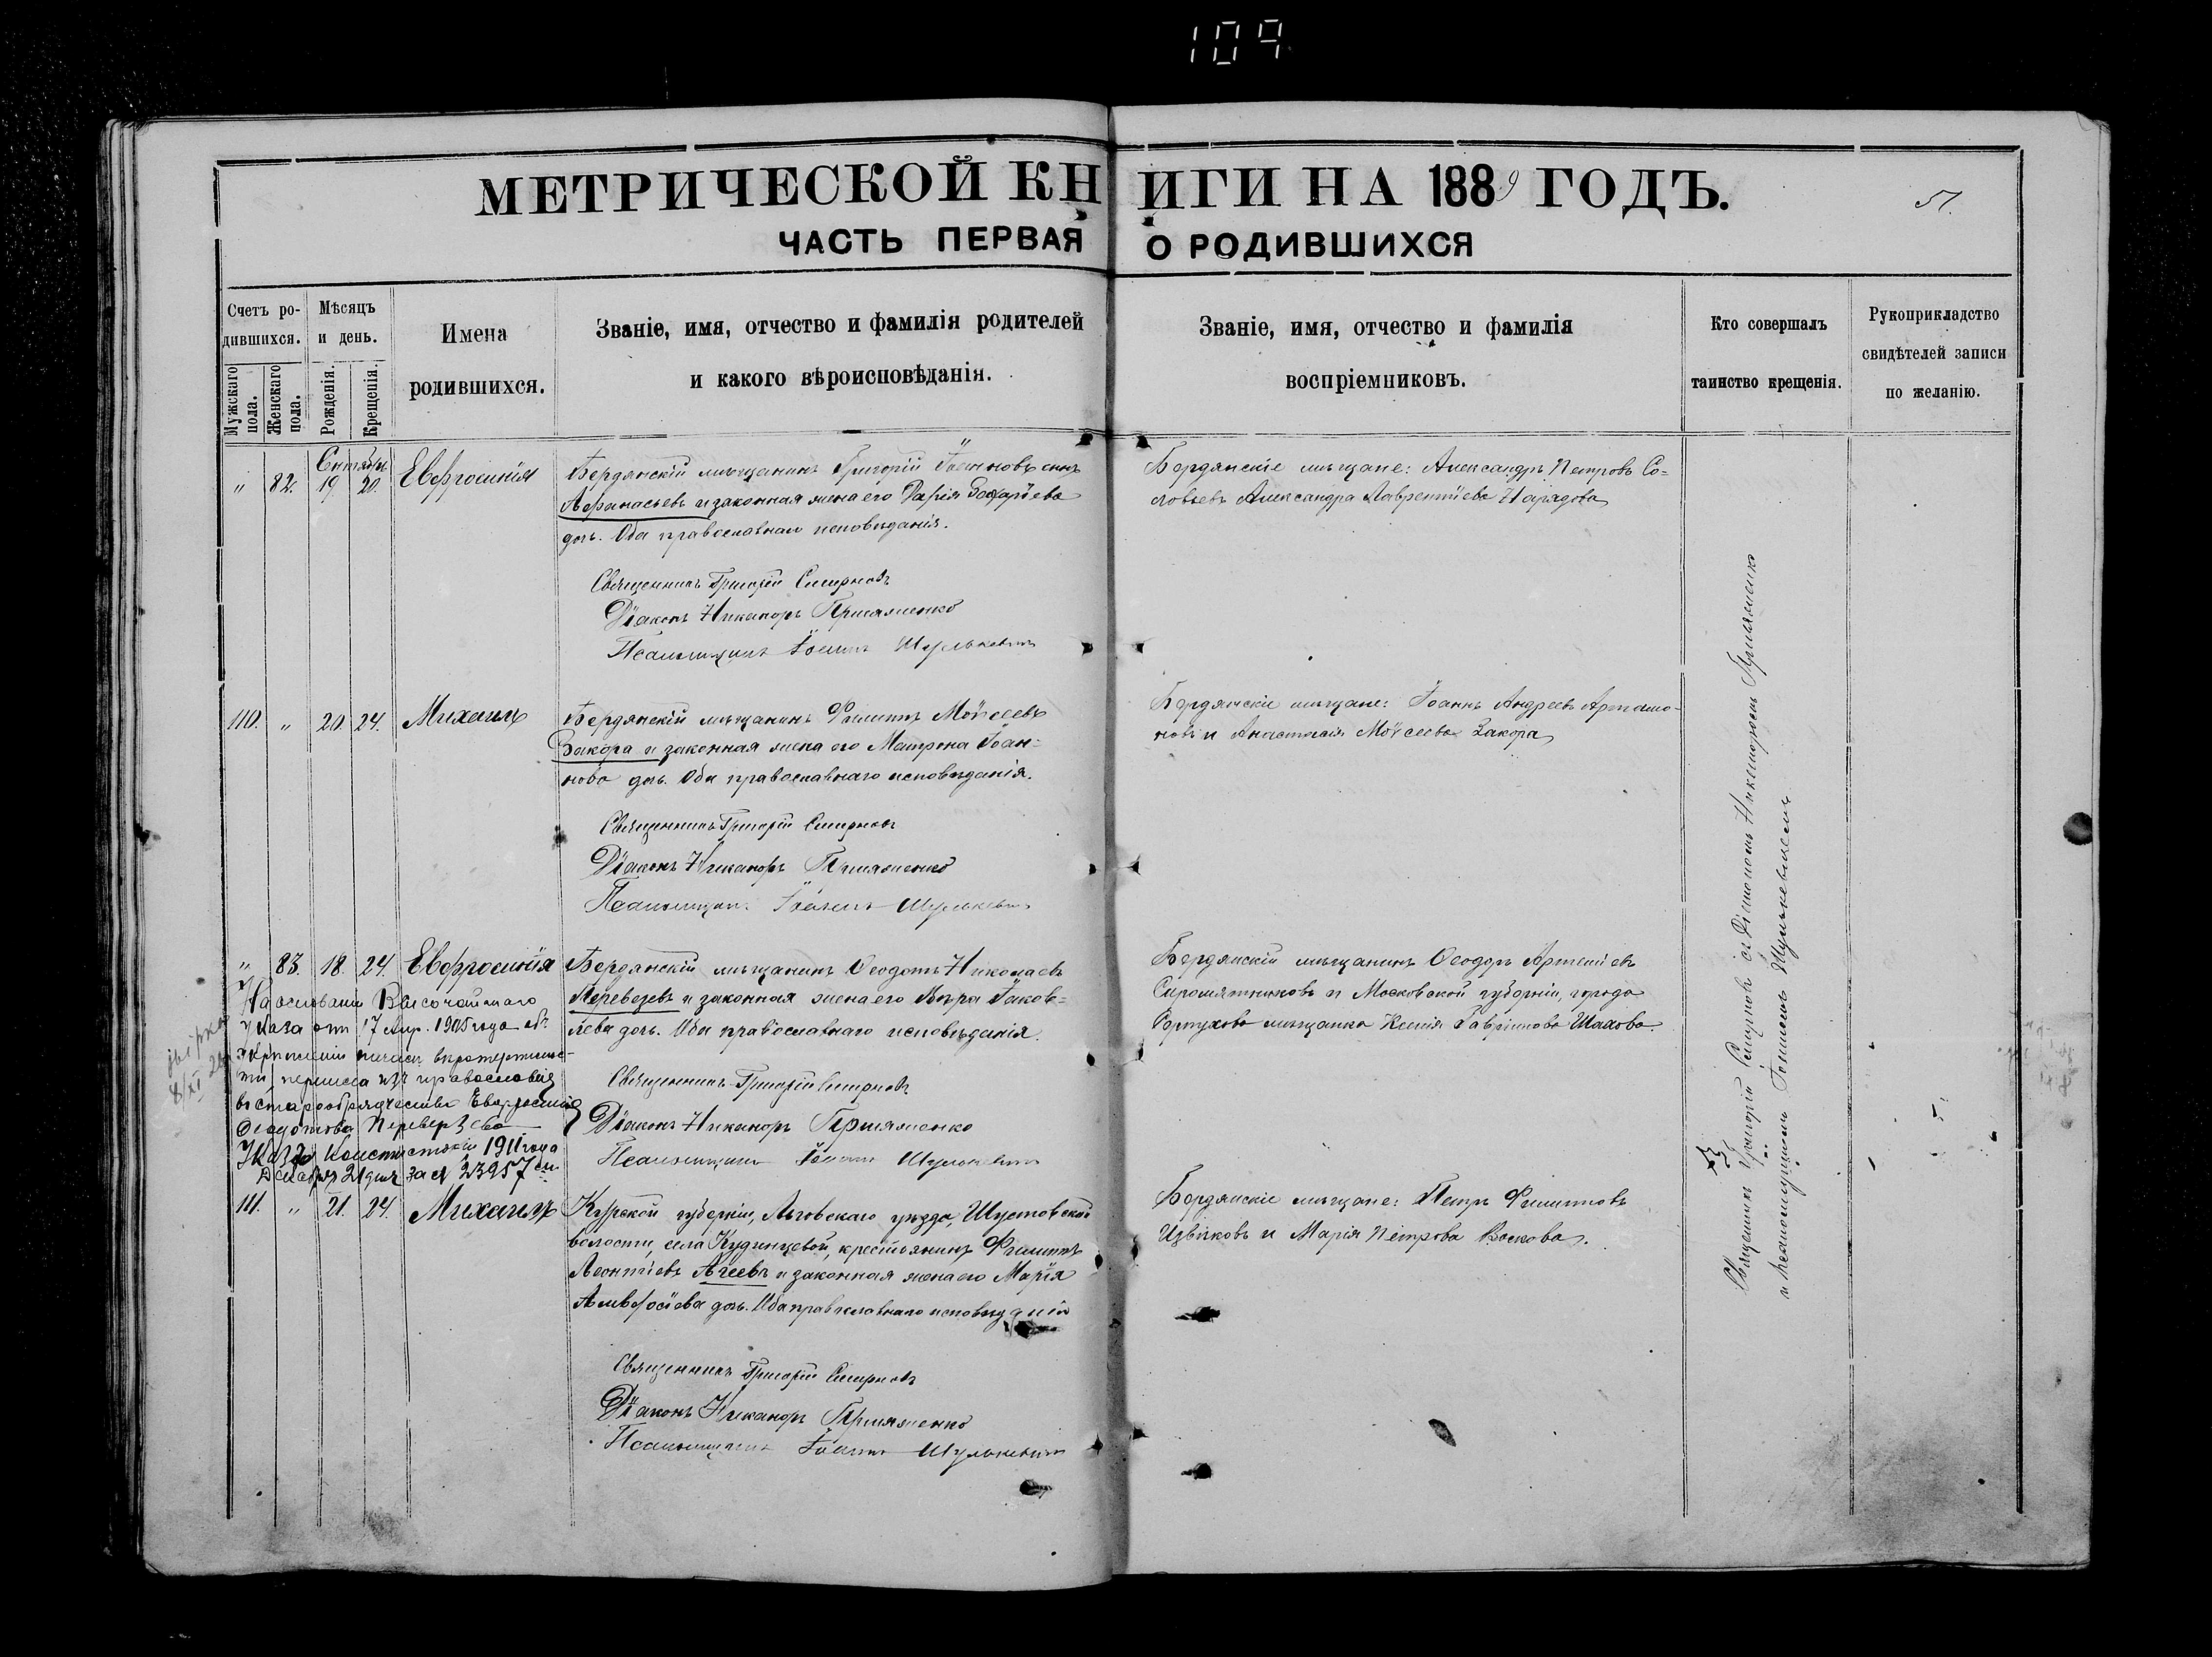 109
МЕТРИЧЕСКОЙ КНИГИ НА 1889 ГОДЪ.
51.
ЧАСТЬ ПЕРВАЯ О РОДИВШИХСЯ
Счетъ родившихся.
Мужскаго пола.
Женскаго пола.
Мѣсяцъ и день.
Рожденія.
Крещенія.
Имена
родившихся.
Званіе, имя, отчество и фамилія родителей
и какого вѣроисповѣданія.
Званіе, имя, отчество и фамилія
воспріемниковъ.
Кто совершалъ
таинство крещенія.
Рукоприкладство
свидѣтелей записи
по желанію.
" 82. 19 20. Евфросинія
Бердянскій мѣщанинъ Григорій Іоанновъ сынъ
Афанасьевъ и законная жена его Дарія Захаріева
дочь. Оба православнаго исповѣданія.
Священникъ Григорій Смирновъ
Діаконъ Никаноръ
Псаломщикъ Іоаннъ Шулькевичъ
Бердянскіе мѣщане: Александръ Петровъ Со-
ловьевъ Александра Лаврентіева Нарядова
110. " 20. 24. Михаилъ
Бердянскій мѣщанинъ Филиппъ Моѵсеевъ
Закора и законная жена его Матрона Іоан-
нова дочь. Оба православнаго исповѣданія.
Священникъ Григорій Смирновъ
Діаконъ Никаноръ
Псаломщикъ Іоаннъ Шулькевичъ
Бердянскіе мѣщане: Іоаннъ Андреевъ Артамо-
новъ и Анастасія Моѵсеева Закора
" 83. 18. 24. Евфросинія
Бердянскій мѣщанинъ Ѳеодотъ Николаевъ
Перевезевъ и законная жена его Вѣра Іаков-
лева дочь. Оба православнаго исповѣданія.
Священникъ Григорій Смирновъ
Діаконъ Никаноръ
Псаломщикъ Іоаннъ Шулькевичъ
Бердянскій мѣщанинъ Ѳеодоръ Артеміевъ
Сыромятниковъ и Московской губерніи, города
Серпухова мѣщанка Ксенія Гавріилова Шахова
На основаніи Высочайшаго
Указа отъ 17 апр. 1905 года объ
изъ православія
въ старообрядчество Евфросинія
Ѳеодотова Переверзева
Указъ Консисторіи 1911 года
Декабря 21 дня за № 23957
111. " 21. 24. Михаилъ
Курской губерніи, Льговскаго уѣзда, Шустовской
волости, села Кудинцевой, крестьянинъ Филиппъ
Леонтіевъ Агеевъ и законная жена его Марія
Амвросіева дочь. Оба православнаго исповѣданія
Священникъ Григорій Смирновъ
Діаконъ Никаноръ
Псаломщикъ Іоаннъ Шулькевичъ
Бердянскіе мѣщане: Петръ Филипповъ
Цвѣтковъ и Марія Петрова Воскова.
Священникъ Григорій Смирновъ съ Діакономъ Никаноромъ
и псаломщикомъ Іоанномъ Шулькевичемъ